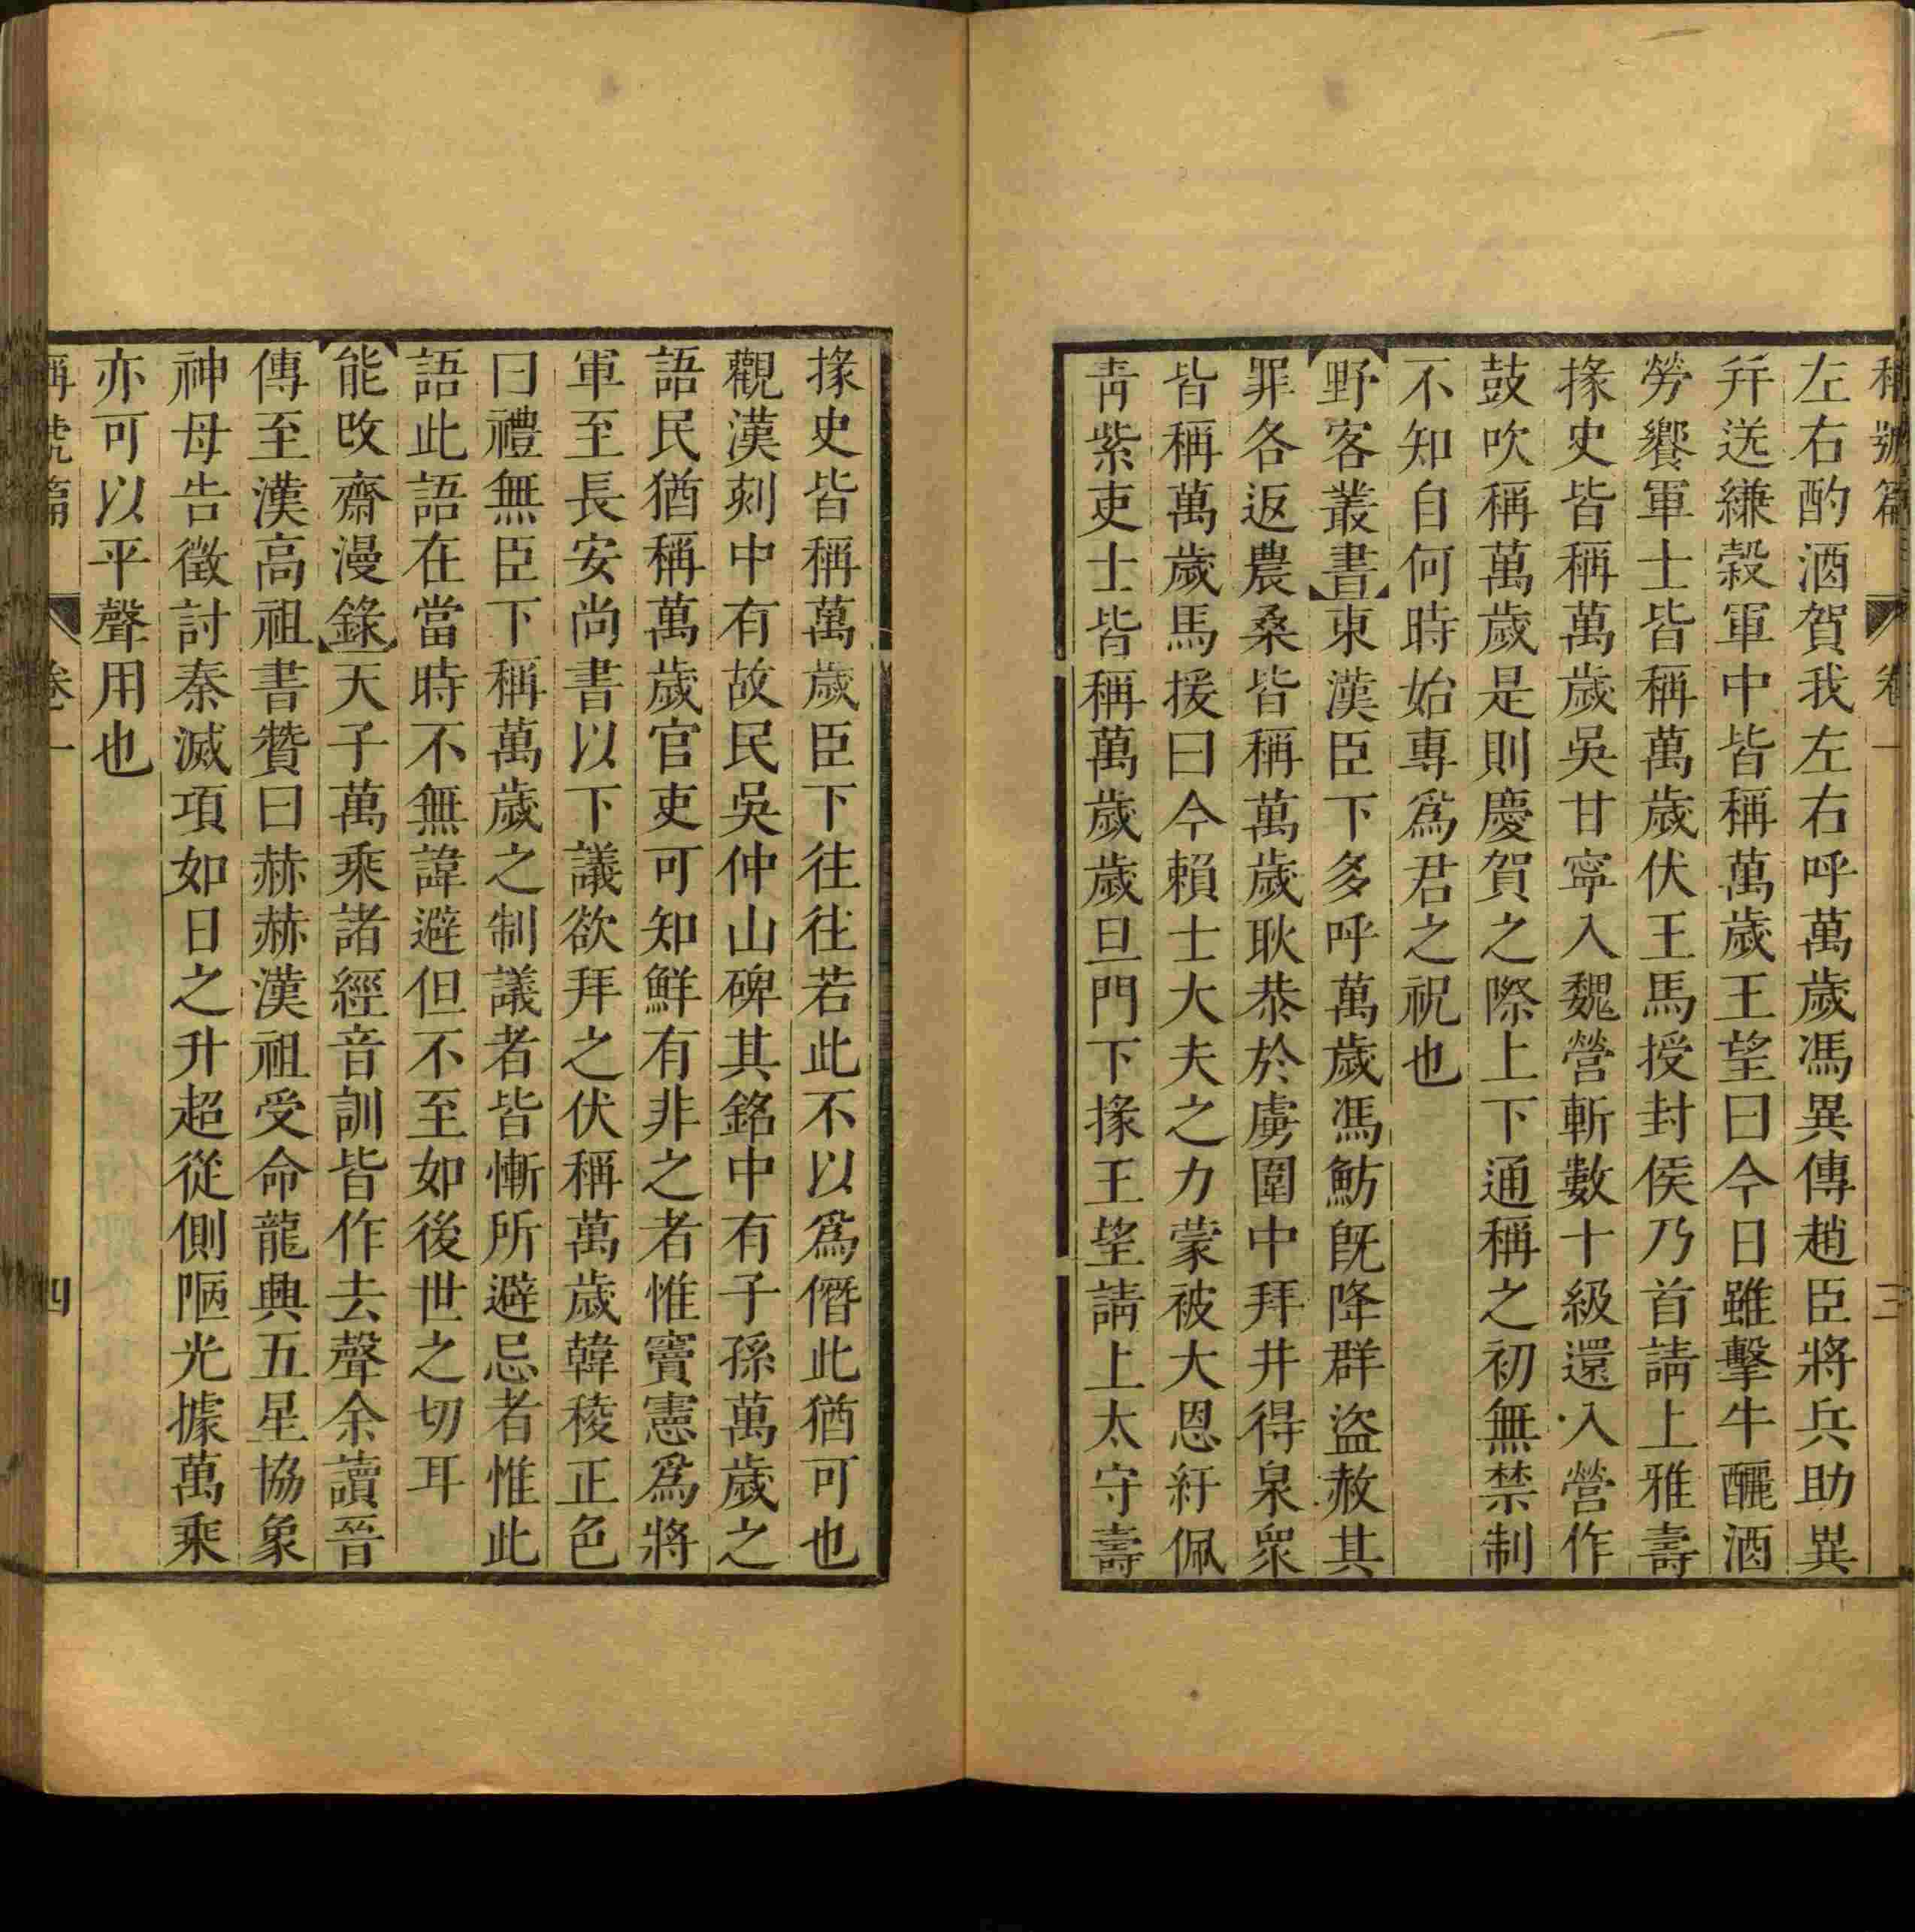 稱號篇 卷一 三
左右酌酒賀我左右呼萬歲馮異傳趙臣將兵助異
幷送縑穀軍中皆稱萬歲王望曰今日雖擊牛釃酒
勞饗軍士皆稱萬歲伏王馬授封侯乃首請上雅壽
掾史皆稱萬歲吳甘寧入魏營斬數十級還入營作
鼓吹稱萬歲是則慶賀之際上下通稱之初無禁制
不知自何時始專爲君之祝也
野客叢書東漢臣下多呼萬歲馮魴旣降群盜赦其
罪各返農桑皆稱萬歲耿恭於虜圍中拜井得泉衆
皆稱萬歲馬援曰今賴士大夫之力蒙被大恩紆佩
靑紫吏士皆稱萬歲歲旦門下掾王望請上太守壽
掾史皆稱萬歲臣下往往若此不以爲僭此猶可也
觀漢刻中有故民吳仲山碑其銘中有子孫萬歲之
語民猶稱萬歲官吏可知鮮有非之者惟竇憲爲將
軍至長安尚書以下議欲拜之伏稱萬歲韓稜正色
曰禮無臣下稱萬歲之制議者皆慚所避忌者惟此
語此語在當時不無諱避但不至如後世之切耳
能攺齋漫錄天子萬乘諸經音訓皆作去聲余讀晉
傳至漢高祖書贊曰赫赫漢祖受命龍興五星協象
神母告徵討秦滅項如日之升超從側陋光據萬乘
亦可以平聲用也
稱號篇 卷一 四